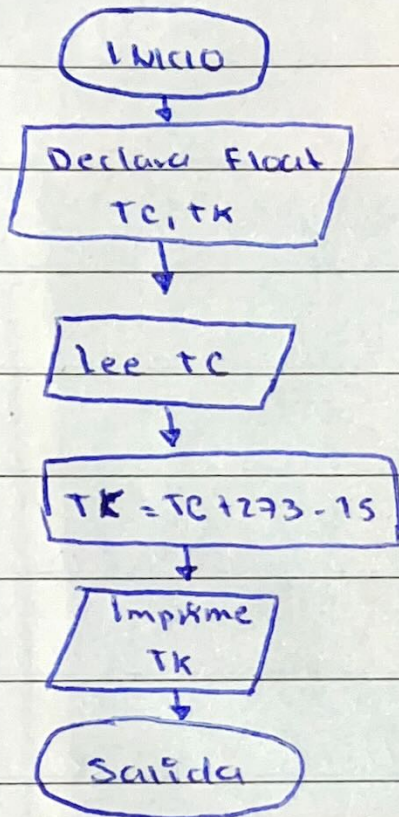 INICIO
Declara Float
TC, TK
lee TC
TK = TC + 273 - 15
Imprime
TK
Salida